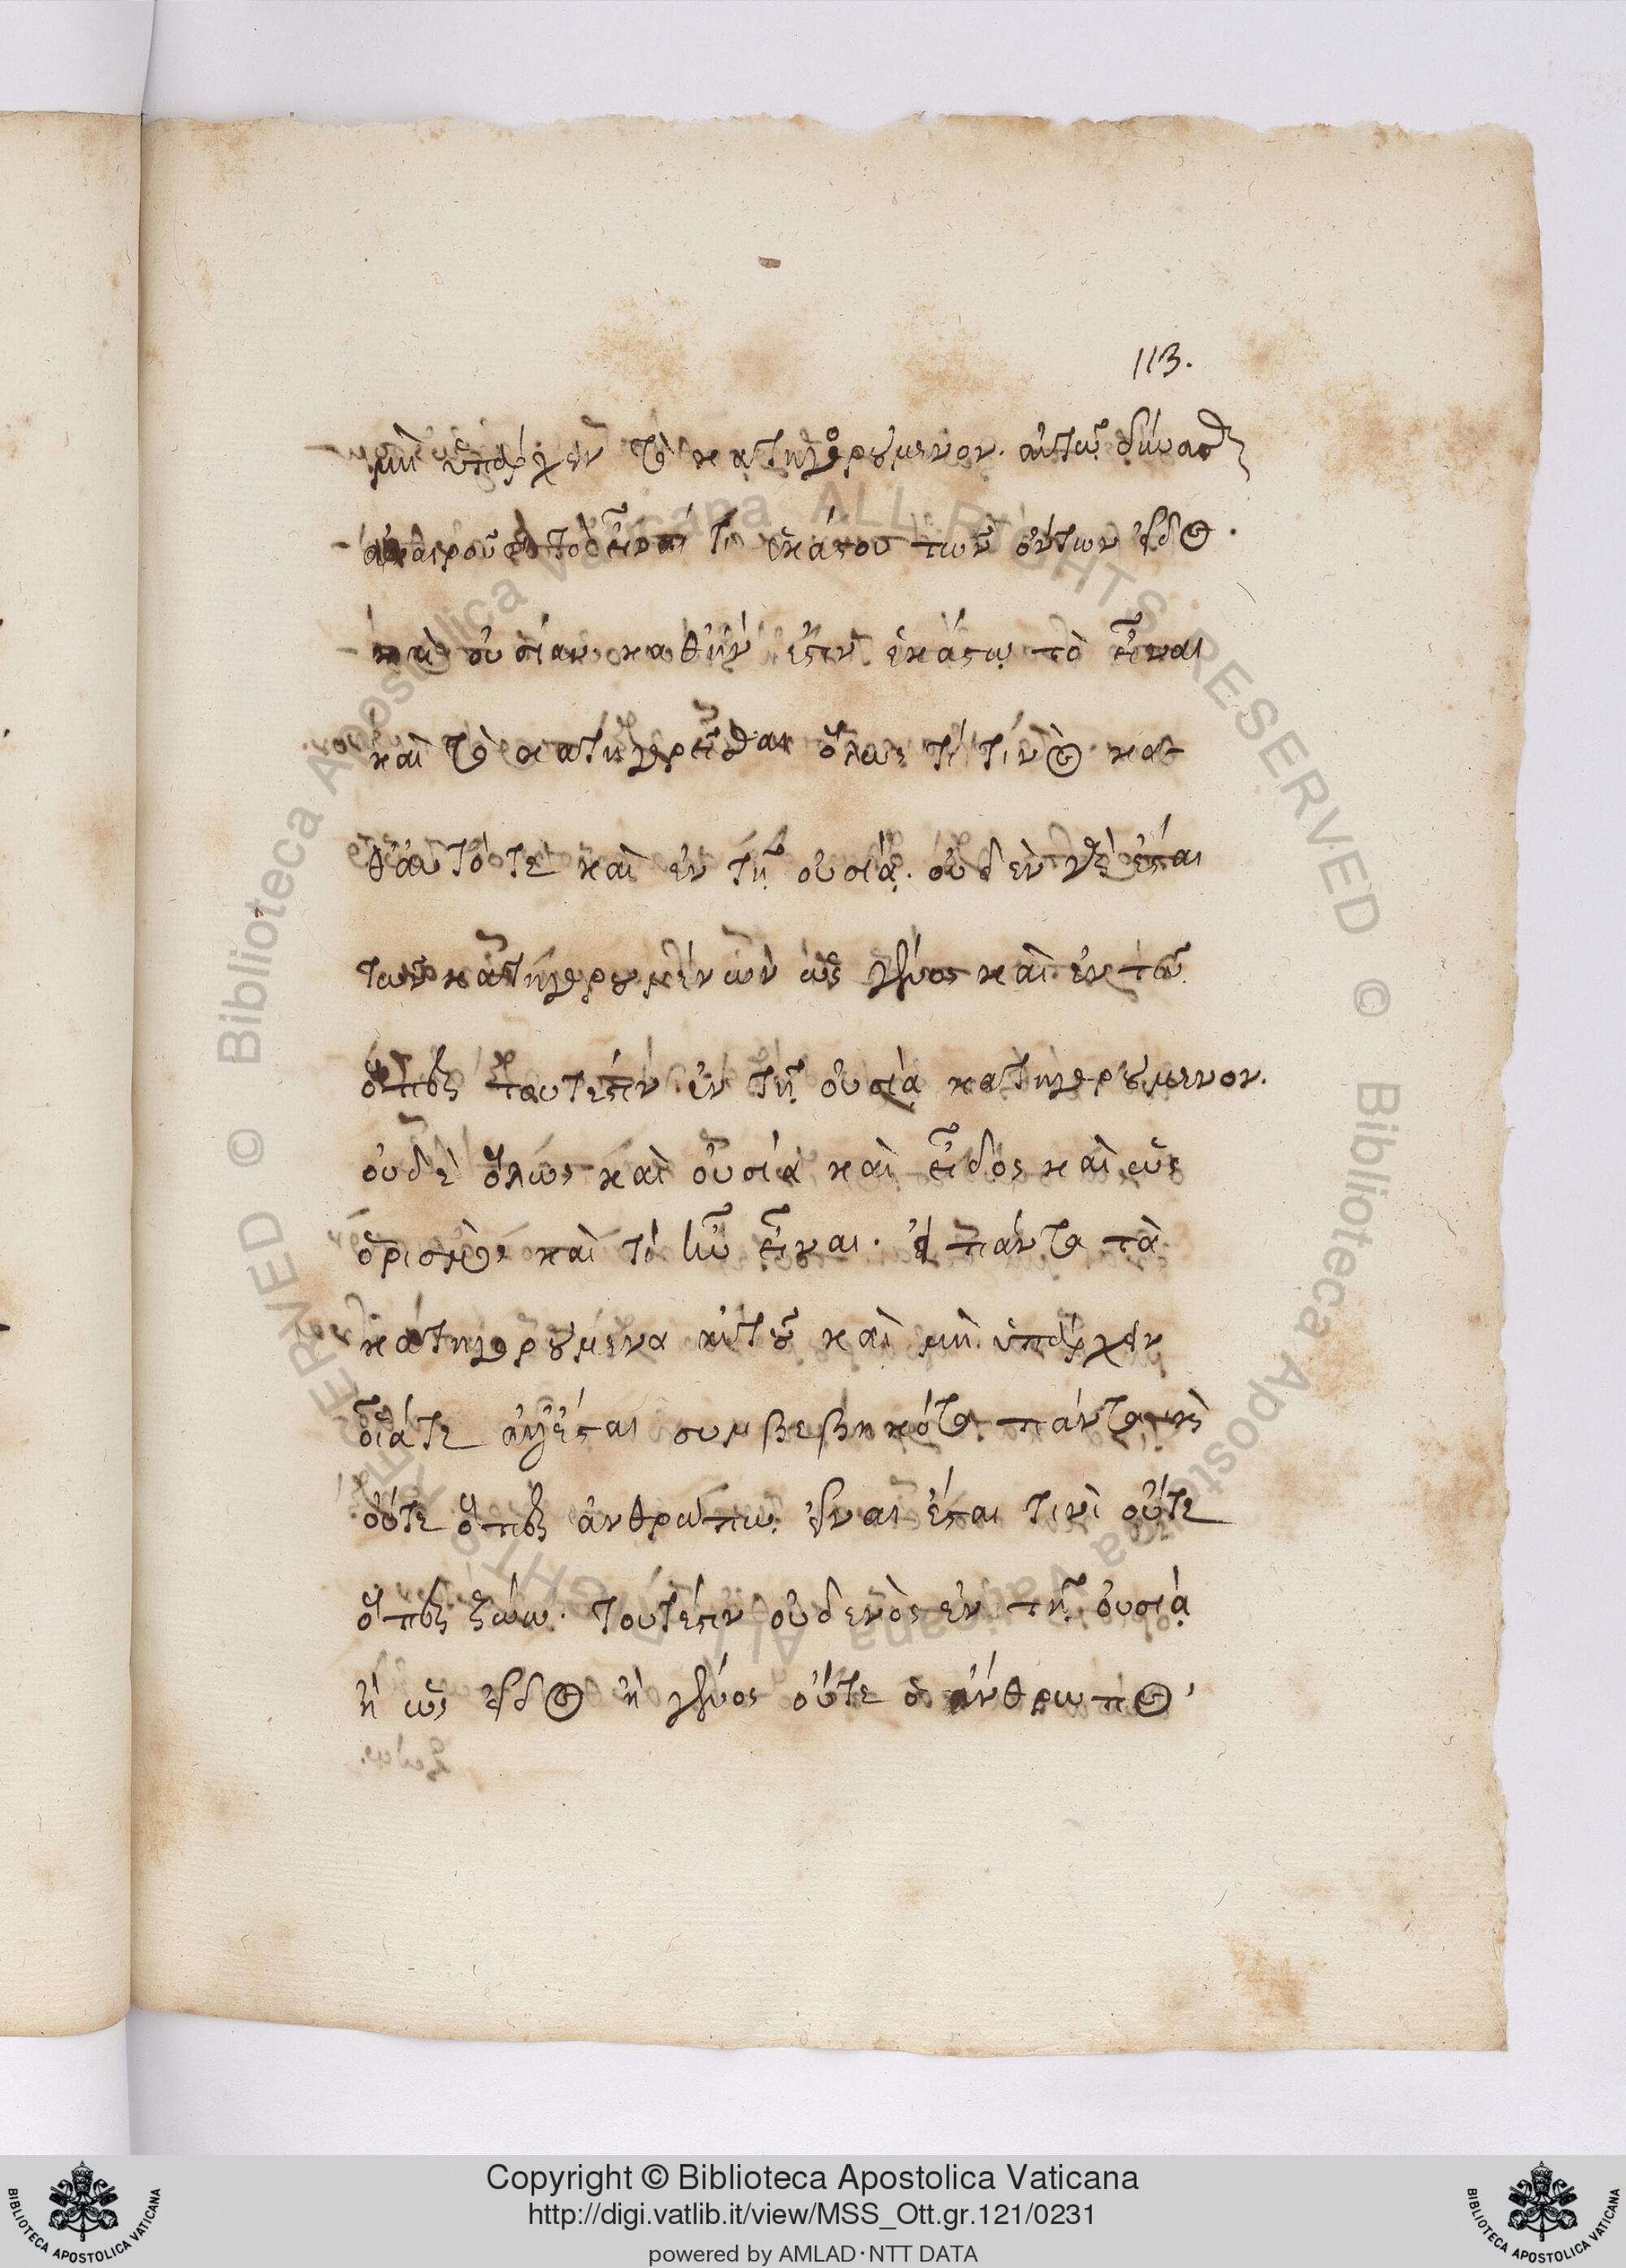 113.
μὴ ὑπάρχειν τὸ κατηγορούμενον. αὐτῷ δύνασθαι
ἀναιροῦσι τὸ εἶναί τι ἑκάστου τῶν ὄντων εἶδος.
καὶ οὐσίαν καθ' ἣν ἐστὶν ἑκάστῳ τὸ εἶναι
καὶ τὸ κατηγορεῖσθαι ὅλως τί τινος κα
θ' αὑτό τε καὶ ἐν τῇ οὐσίᾳ. οὐδὲν ἔσται
τῶν κατηγορουμένων ὡς γένος καὶ ἐν τῷ
ὅπερ τουτέστιν ἐν τῇ οὐσίᾳ κατηγορούμενον.
οὐδὲ ὅλως καὶ οὐσία καὶ εἶδος καὶ ὡς
ὁρισμὸς καὶ τί ἦν εἶναι. εἰ πάντα τὰ
κατηγορούμενα αὐτοῦ καὶ μὴ ὑπάρχειν
οἷά τε ἔσται συμβεβηκότα πάντα καὶ
οὔτε ὅπερ ἀνθρώπῳ εἶναι ἔσται τινὶ οὔτε
ὅπερ ζώῳ. τουτέστιν οὐδενὸς ἐν τῇ οὐσίᾳ
ἢ ὡς εἶδος ἢ γένος οὔτε ὁ ἄνθρωπος
Copyright © Biblioteca Apostolica Vaticana
http://digi.vatlib.it/view/MSS_Ott.gr.121/0231
powered by AMLAD·NTT DATA
BIBLIOTECA APOSTOLICA VATICANA
BIBLIOTECA APOSTOLICA VATICANA
© Biblioteca Apostolica Vaticana ALL RIGHTS RESERVED
© Biblioteca Apostolica Vaticana ALL RIGHTS RESERVED